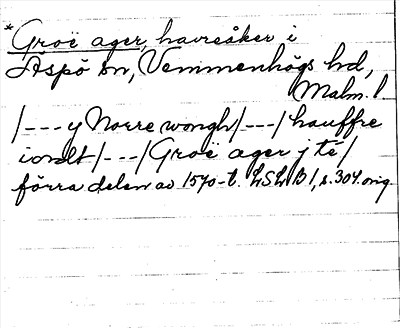 * Groë ager, havreåker i
Aspö sn, Vemmenhögs hd,
Malm. l
/---y Norre wongh/---/ hauffre
iordt/---/Groë ager j té/
förra delen av 1570-t. LSLB 1, s. 304. orig.